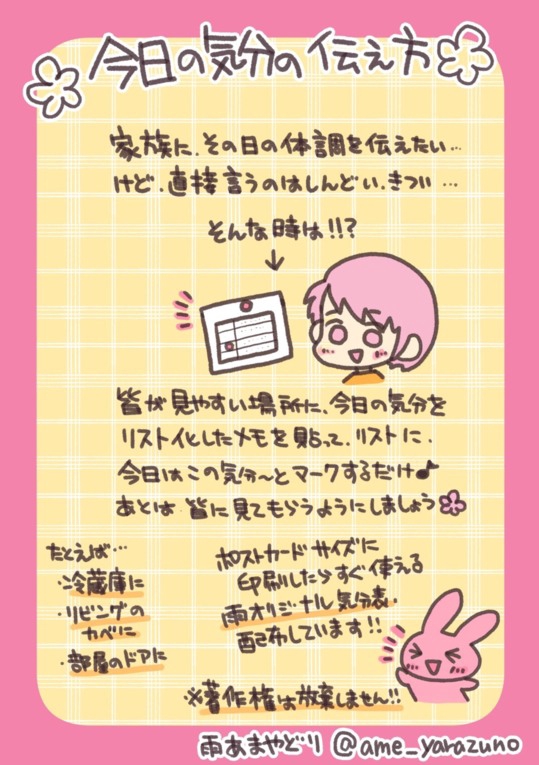 今日の気分の伝え方
家族に、その日の体調を伝えたい…
けど、直接言うのはしんどい、きつい…
そんな時は!!?
皆が見やすい場所に、今日の気分を
リスト化としたメモを貼って、リストに、
今日はこの気分〜とマークするだけ♪
あとは皆に見てもらうようにしましょう
たとえば…
・冷蔵庫に
・リビングの
カベに
・部屋のドアに
ポストカードサイズに
印刷したらすぐ使える
雨オリジナル気分表、
配布しています!!
※著作権は放棄しません!!
雨あまやどり @ame_yarazuno